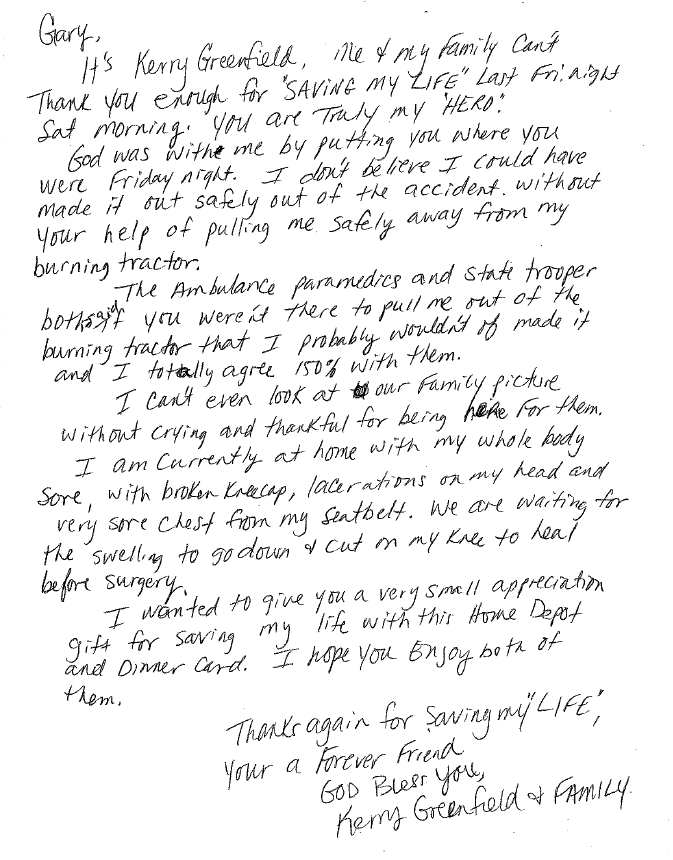 Gary,
It's Kerry Greenfield, Me & my Family Can't
Thank you enough for "SAVING MY LIFE" Last Fri. night
Sat morning. You are Truly my "HERO".
God was with me by putting you where you
were Friday night. I don't believe I could have
made it out safely out of the accident without
your help of pulling me safely away from my
burning tractor.
The Ambulance paramedics and state trooper
both said if you weren't there to pull me out of the
burning tractor that I probably wouldn't of made it
and I totally agree 150% with them.
I can't even look at our Family picture
without crying and thankful for being here For them.
I am Currently at home with my whole body
Sore, with broken Kneecap, lacerations on my head and
very sore chest from my seatbelt. We are waiting for
the swelling to go down & cut on my knee to heal
before surgery.
I wanted to give you a very small appreciation
gift for saving my life with this Home Depot
and Dinner Card. I hope you Enjoy both of
them.
Thanks again for Saving my "LIFE",
Your a Forever Friend
GOD Bless You,
Kerry Greenfield & FAMILY.